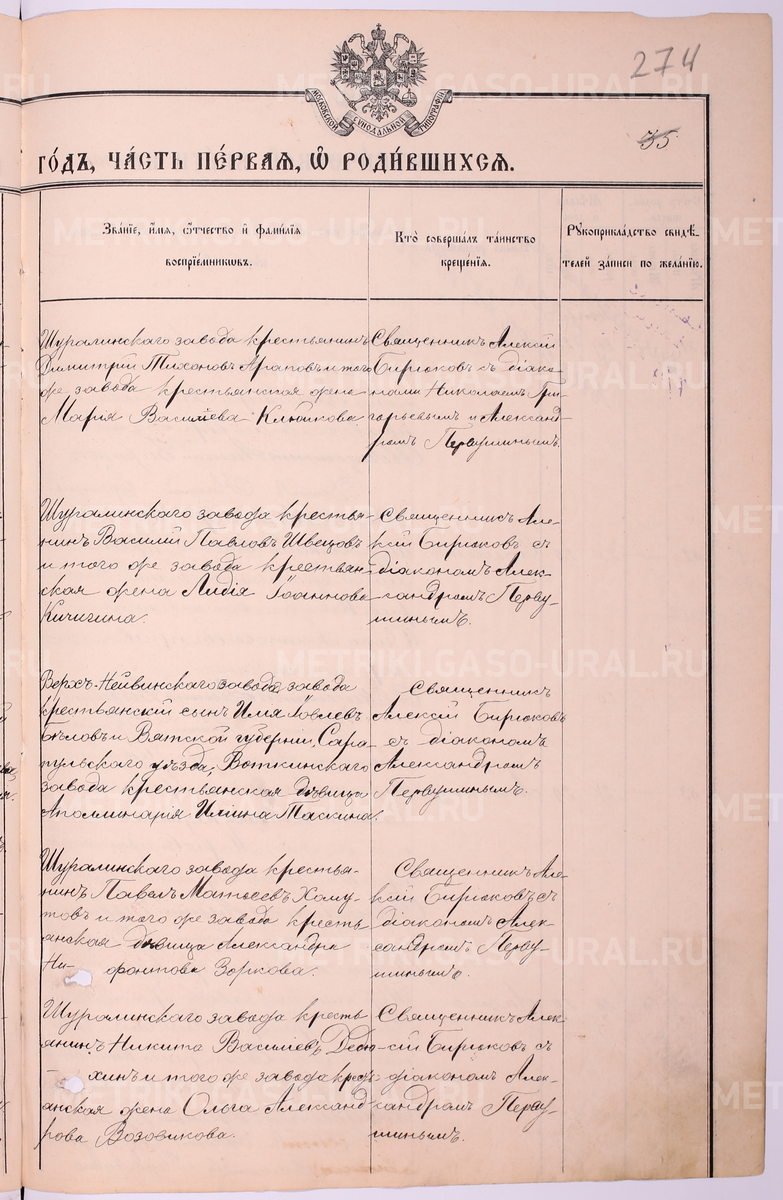 274
35
МОСКОВСКОЙ СѴНОДАЛЬНОЙ ТИПОГРАФІИ
го́дъ, ча́сть пе́рвая, ѡ҆ роди́вшихся.
Зва́нїе, и҆́мѧ, ѻ҆́тчество и҆ фами́лїѧ
воспрїе́мникѡвъ.
Кто̀ соверша́лъ та́инство
креще́нїѧ.
Рꙋкоприкла́дство свидѣ́-
телей за́писи по жела́нїю.
Шуралинскаго завода крестьянинъ
Димитрій Тихоновъ Араповъ и того
же завода крестьянская жена
Марія Василіева Клюкова
Священникъ Алексій
Бирюковъ съ діако-
нами Николаемъ Гри-
горьевымъ и Александ-
ромъ Первушинымъ.
Шуралинскаго завода кресть-
нинъ Василій Павловъ Швецовъ
и того же завода крестьян-
ская жена Лидія Іоаннова
Кичигина.
Священникъ Але-
ксій Бирюковъ съ
діакономъ Алек-
сандромъ Перву-
шинымъ.
Верхъ-Нейвинскаго завода завода
крестьянскій сынъ Илія Іовлевъ
Бѣловъ и Вятской губерніи, Сара-
пульскаго уѣзда, Воткинскаго
завода крестьянская дѣвица
Аполлинарія Иліина Таскина.
Священникъ
Алексій Бирюковъ
съ діакономъ
Александромъ
Первушинымъ.
Шуралинскаго завода крестья-
нинъ Павелъ Матѳеевъ Хаму-
товъ и того же завода кресть
янская дѣвица Александра
Ни- фонтова Зоркова.
Священникъ Але-
ксій Бирюковъ съ
діакономъ Алек-
сандромъ Перву-
шинымъ.
Шуралинскаго завода кресть
янинъ Никита Василіевъ
хинъ и того же завода крест-
янская жена Ольга Александ
рова Возовикова.
Священникъ Алек
сій Бирюковъ съ
діакономъ Алек-
сандромъ Перву-
шинымъ.
METRIKI.GASO-URAL.RU